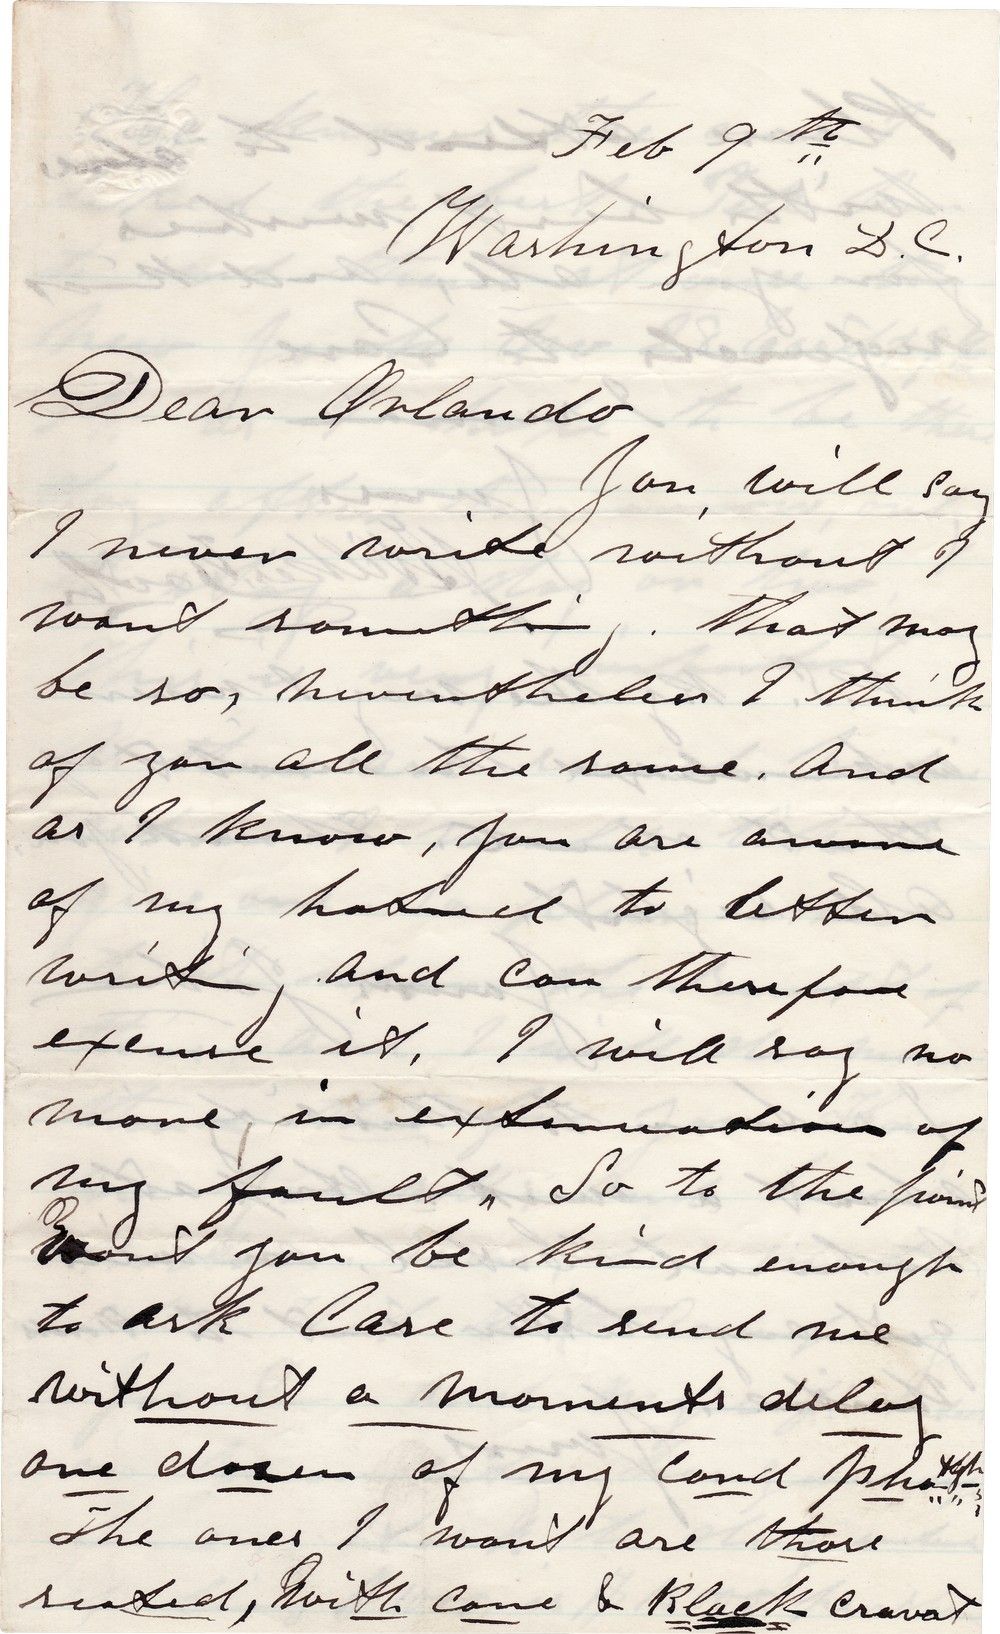 Feb 9th
Washington D.C.
Dear Orlando
You will say
I never write without I
want something. That may
be so, nevertheless I think
of you all the same. And
as I know, you are aware
of my hatred to letter
writing and can therefore
excuse it. I will say no
more in extenuation of
my fault. So to the point
Wont you be kind enough
to ask Case to send me
without a moments delay
one dozen of my card photghs
The ones I want are those
seated, with cane & black cravat